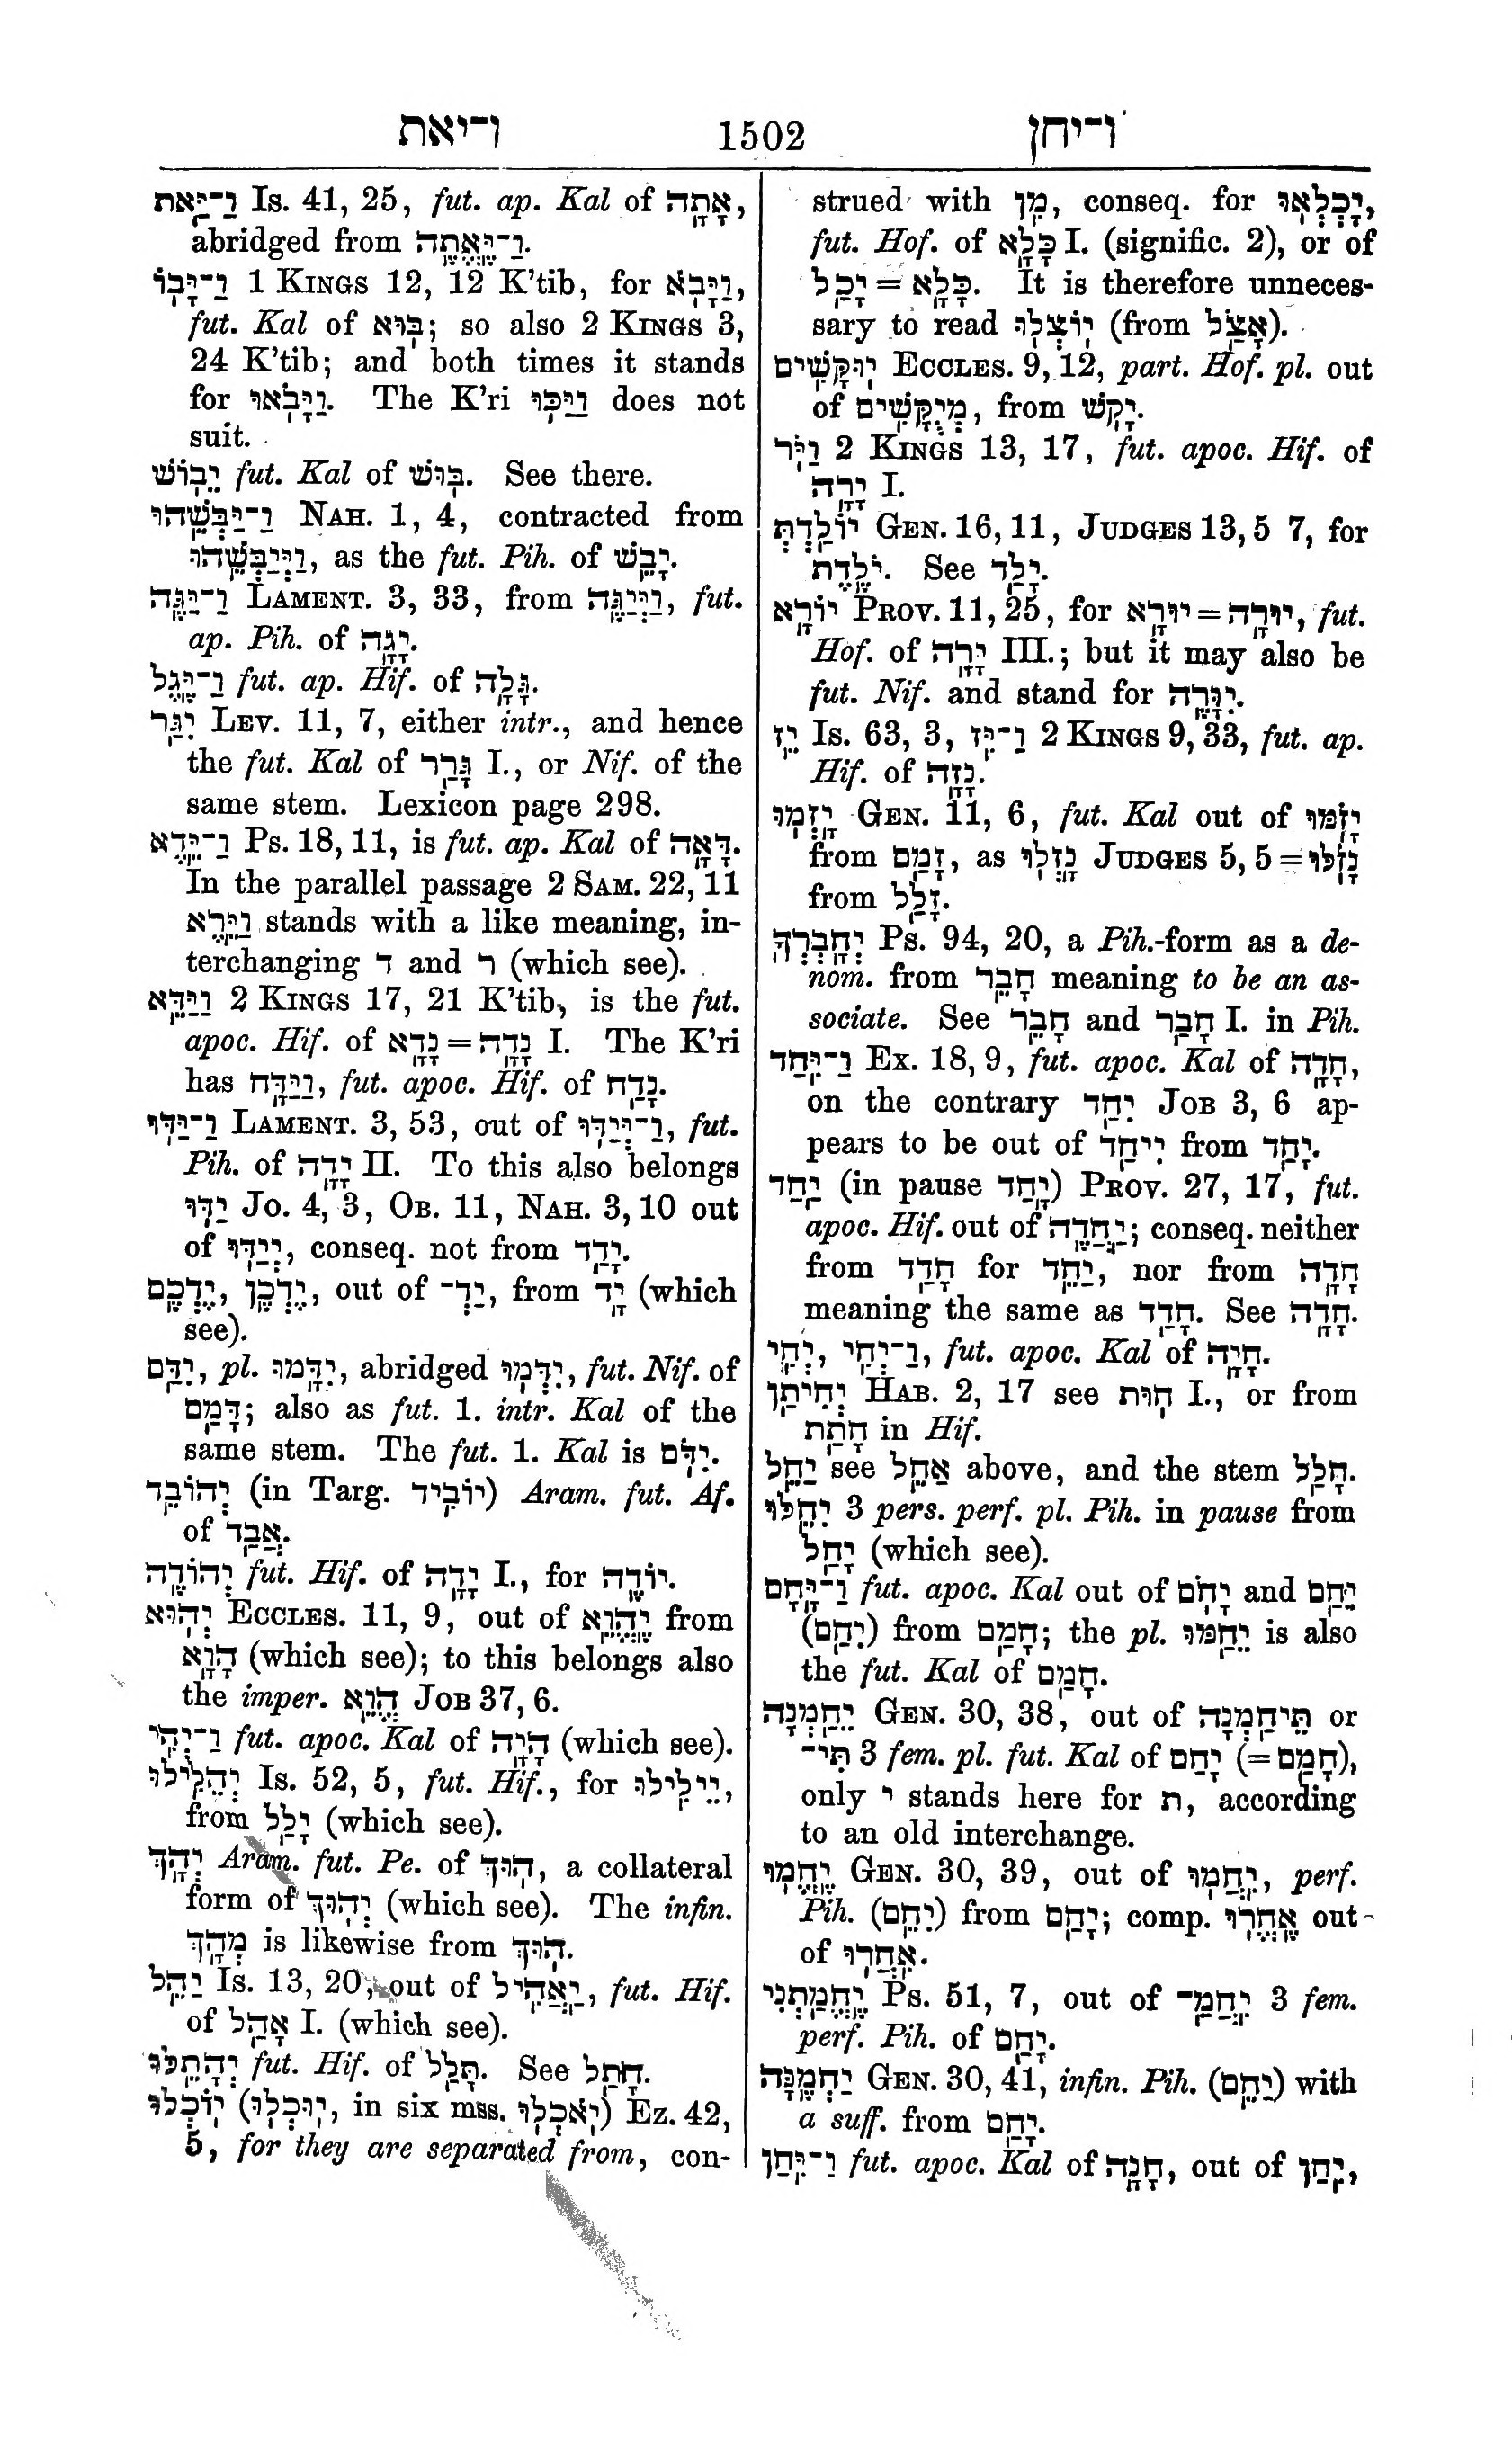 ו־יאת 1502 ו־יחן
וַ־יֵּאת Is. 41, 25, fut. ap. Kal of אָתָה,
abridged from וַ־יֶּאֱתֶה.
וַ־יָּבוֹ 1 KINGS 12, 12 K'tib, for וַיָּבֹא,
fut. Kal of בּוֹא; so also 2 KINGS 3,
24 K'tib; and both times it stands
for וַיָּבֹאוּ. The K'ri וַיַּכּוּ does not
suit.
יֵבוֹשׁ fut. Kal of בּוּשׁ. See there.
וַ־יַּבְּשֵׁהוּ NAH. 1, 4, contracted from
וַיְיַבְּשֵׁהוּ, as the fut. Pih. of יָבֵשׁ.
וַ־יַּגֶּה LAMENT. 3, 33, from וַיְיַגֶּה, fut.
ap. Pih. of יָגָה.
וַ־יֶּגֶל fut. ap. Hif. of גָּלָה.
יִגַּר LEV. 11, 7, either intr., and hence
the fut. Kal of גָּרַר I., or Nif. of the
same stem. Lexicon page 298.
וַ־יֵּדֶא Ps. 18, 11, is fut. ap. Kal of דָּאָה.
In the parallel passage 2 SAM. 22, 11
וַיֵּרֶא stands with a like meaning, in-
terchanging ד and ר (which see).
וַיַּדֵּא 2 KINGS 17, 21 K'tib, is the fut.
apoc. Hif. of נָדָא = נָדָה I. The K'ri
has וַיַּדַּח, fut. apoc. Hif. of נָדַח.
וַ־יַּדּוּ LAMENT. 3, 53, out of וַ־יְיַדּוּ, fut.
Pih. of יָדָה II. To this also belongs
יַדּוּ Jo. 4, 3, OB. 11, NAH. 3, 10 out
of יְיַדּוּ, conseq. not from יָדַד.
יֶדְכֶם, יֶדְכֶן, out of יַדְ־, from יָד (which
see).
יִדַּם, pl. יִדָּמוּ, abridged יִדְּמוּ, fut. Nif. of
דָּמַם; also as fut. 1. intr. Kal of the
same stem. The fut. 1. Kal is יִדֹּם.
יְהוֹבֵד (in Targ. יוֹבִיד) Aram. fut. Af.
of אֲבַד.
יְהוֹדֶה fut. Hif. of יָדָה I., for יוֹדֶה.
יְהוּא ECCLES. 11, 9, out of יֶהֱוֵא from
הָוָא (which see); to this belongs also
the imper. הֱוֵא JOB 37, 6.
וַ־יְהִי fut. apoc. Kal of הָיָה (which see).
יְהֵלִילוּ Is. 52, 5, fut. Hif., for יֵילִילוּ,
from יָלַל (which see).
יְהָךְ Aram. fut. Pe. of הוּךְ, a collateral
form of יְהוּךְ (which see). The infin.
מְהָךְ is likewise from הוּךְ.
יַהֵל Is. 13, 20, out of יַאֲהִיל, fut. Hif.
of אָהַל I. (which see).
יְהָתֵלּוּ fut. Hif. of תָּלַל. See חָתַל.
יוֹכְלוּ (יוּכְלוּ, in six mss. יֹאכְלוּ) Ez. 42,
5, for they are separated from, con-
strued with מִן, conseq. for יָכְלְאוּ,
fut. Hof. of כָּלָא I. (signific. 2), or of
יָכַל = כָּלָא. It is therefore unneces-
sary to read יוֹצְלוּ (from אָצַל).
יוּקָשִׁים ECCLES. 9, 12, part. Hof. pl. out
of מְיֻקָּשִׁים, from יָקשׁ.
וַיֹּר 2 KINGS 13, 17, fut. apoc. Hif. of
יָרָה I.
יוֹלַדְתְּ GEN. 16, 11, JUDGES 13, 5 7, for
יֹלֶדֶת. See יָלַד.
יוֹרָא PROV. 11, 25, for יוּרָא = יוּרָה, fut.
Hof. of יָרָה III.; but it may also be
fut. Nif. and stand for יִוָּרֶה.
יֵז Is. 63, 3, וַ־יִּז 2 KINGS 9, 33, fut. ap.
Hif. of נָזָה.
יָזְמוּ GEN. 11, 6, fut. Kal out of יָזֹמּוּ
from זָמַם, as נָזְלוּ JUDGES 5, 5 = נָזֹלּוּ
from זָלַל.
יְחָבְרְךָ Ps. 94, 20, a Pih.-form as a de-
nom. from חָבֵר meaning to be an as-
sociate. See חָבֵר and חָבַר I. in Pih.
וַ־יִּחַד Ex. 18, 9, fut. apoc. Kal of חָדָה,
on the contrary יִחַד JOB 3, 6 ap-
pears to be out of יִיחַד from יָחַד.
יַחַד (in pause יָחַד) PROV. 27, 17, fut.
apoc. Hif. out of יַחֲדֶה; conseq. neither
from חָדַד for יַחֵד, nor from חָדָה
meaning the same as חָדַד. See חָדָה.
יְחִי, וַ־יְחִי, fut. apoc. Kal of חָיָה.
יְחִיתַן HAB. 2, 17 see חוּת I., or from
חָתַת in Hif.
יַחֵל see אַחֵל above, and the stem חָלַל.
יִחֵלּוּ 3 pers. perf. pl. Pih. in pause from
יָחַל (which see).
וַ־יָּחָם fut. apoc. Kal out of יָחֹם and יֵחַם
(יִחַם) from חָמַם; the pl. יֵחַמּוּ is also
the fut. Kal of חָמַם.
יֵחַמְנָה GEN. 30, 38, out of תֵּיחַמְנָה or
תִּי־ 3 fem. pl. fut. Kal of יָחַם (= חָמַם),
only י stands here for ת, according
to an old interchange.
יֶחֱמוּ GEN. 30, 39, out of יִחֲמוּ, perf.
Pih. (יִחֵם) from יָחַם; comp. אֶחֱרוּ out
of אִחֲרוּ.
יֶחֱמַתְנִי Ps. 51, 7, out of יִחֲמַ־ 3 fem.
perf. Pih. of יָחַם.
יַחְמֶנָּה GEN. 30, 41, infin. Pih. (יַחֵם) with
a suff. from יָחַם.
וַ־יִּחַן fut. apoc. Kal of חָנָה, out of יִחַן,